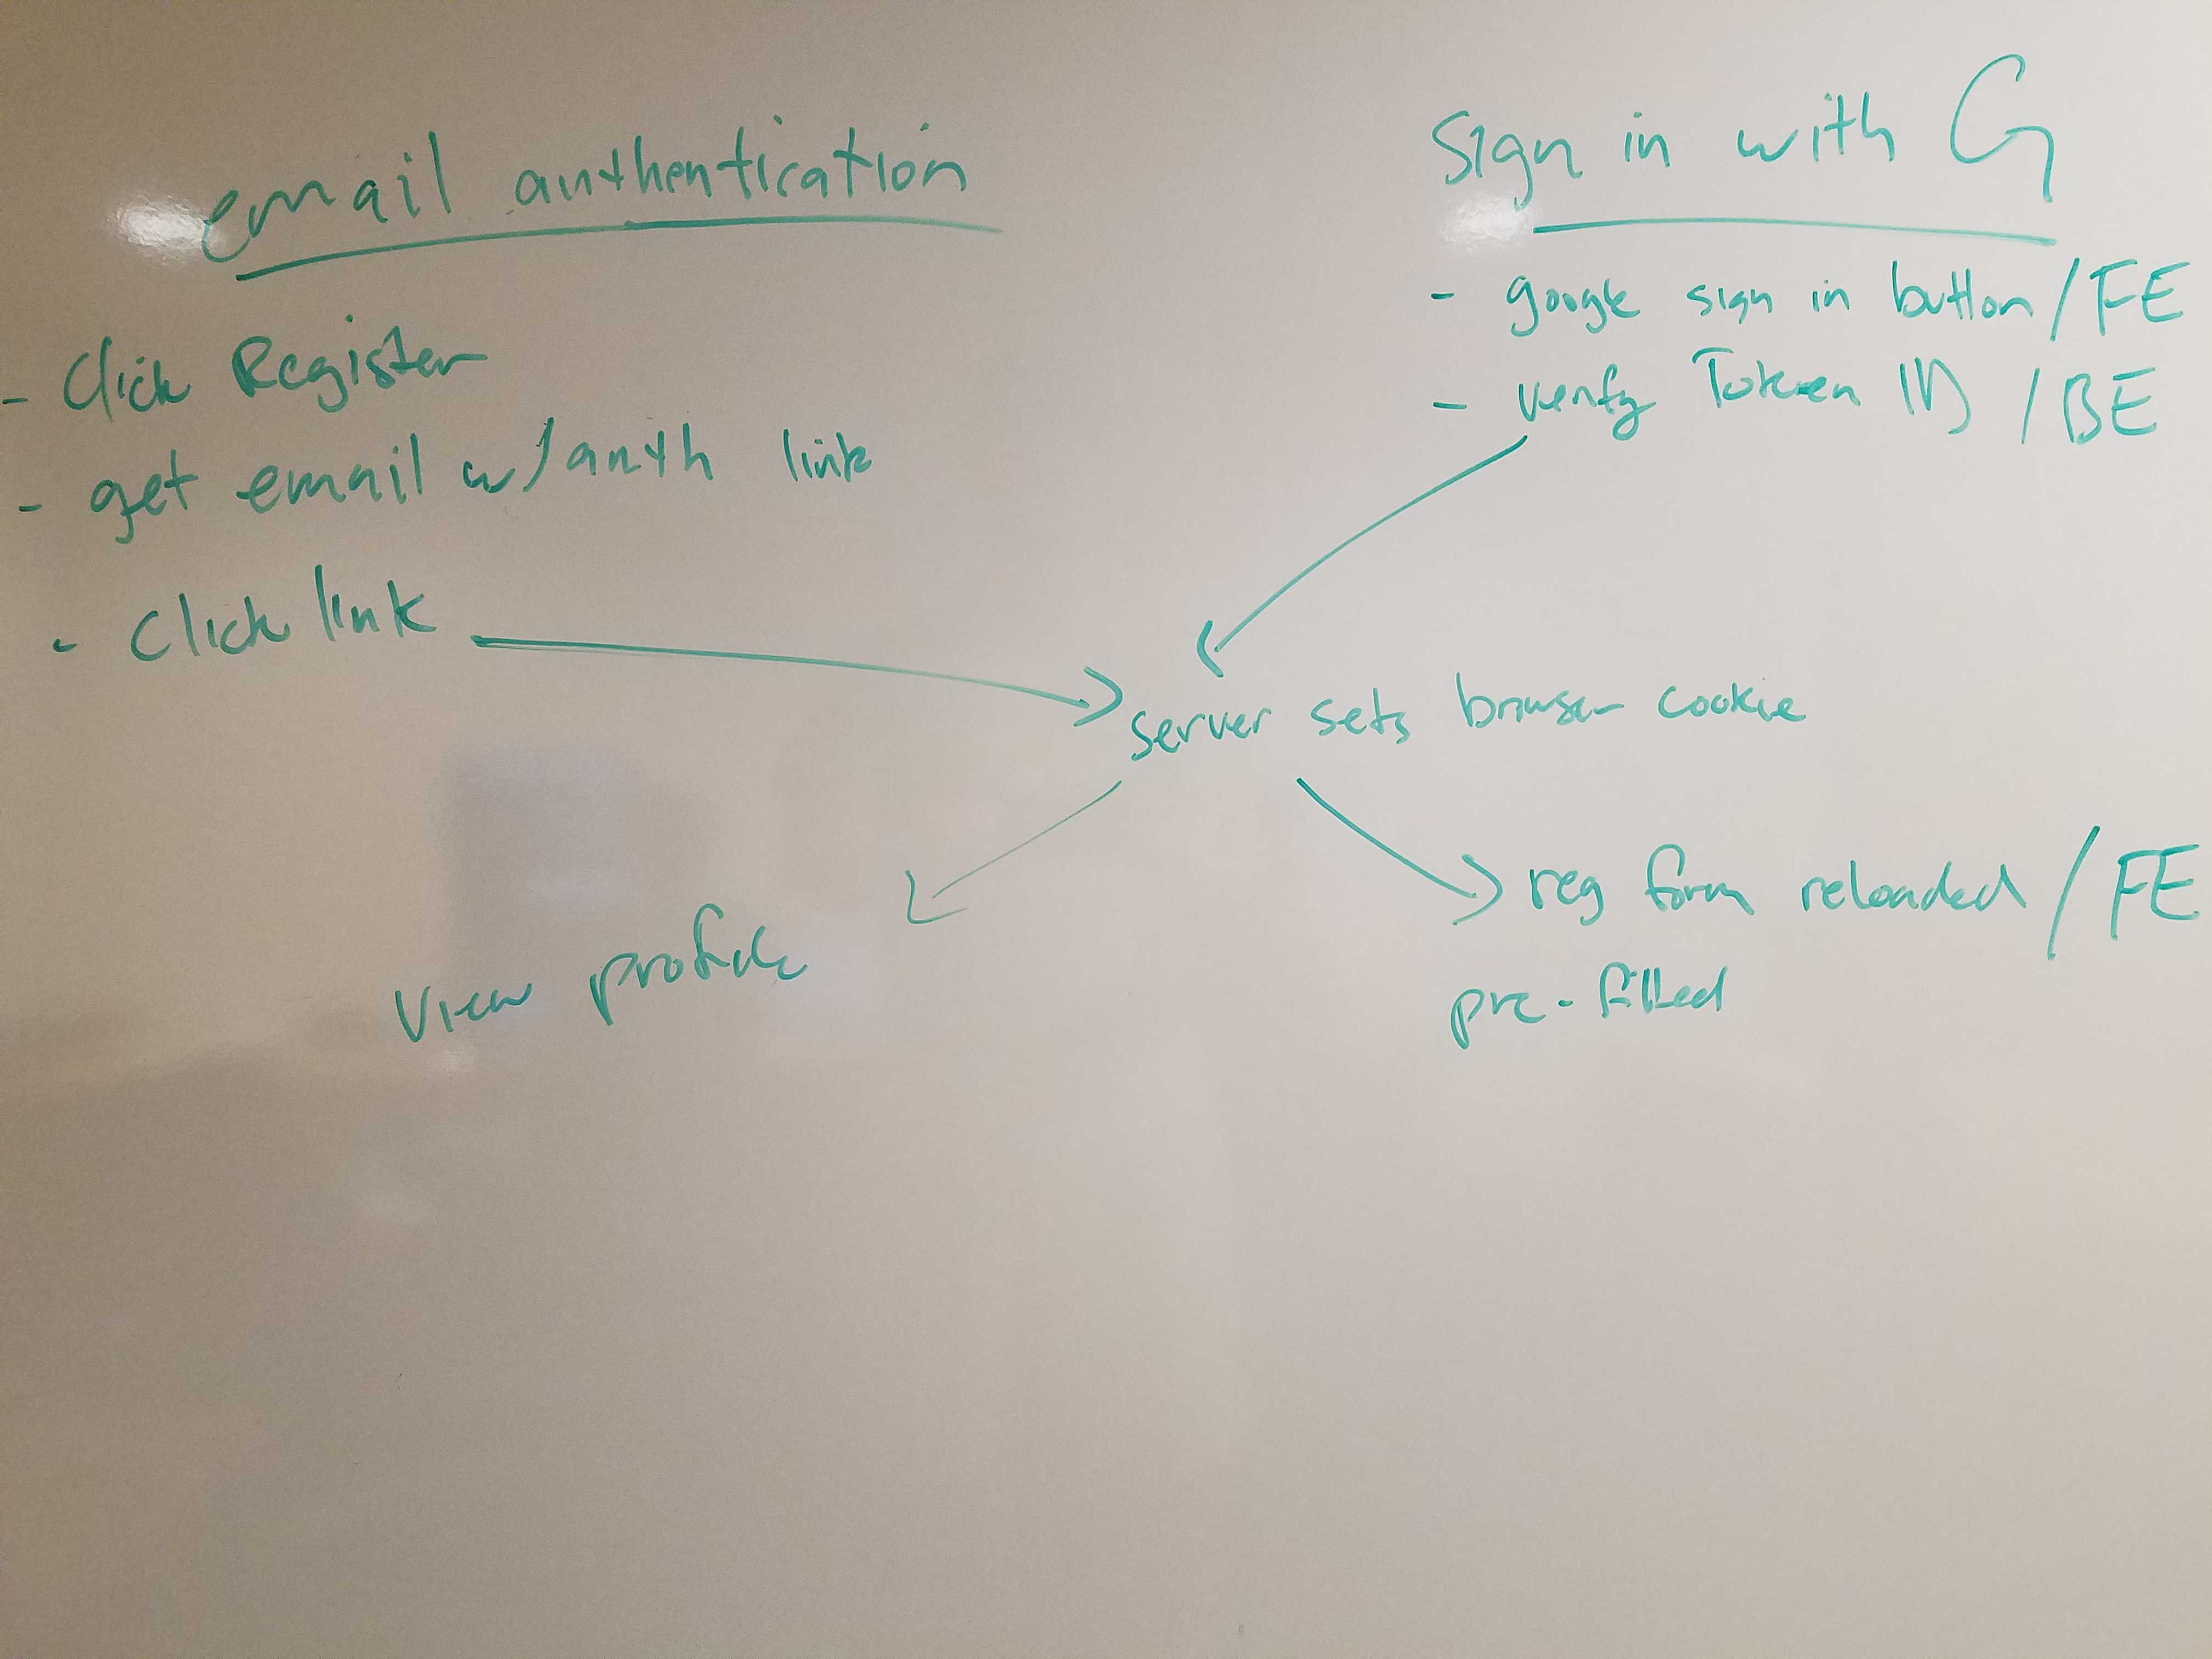 email authentication
- Click Register
- get email w/ auth link
- Click link
Sign in with G
- google sign in button / FE
- verify Token ID / BE
server sets browser cookie
view profile
reg form reloaded / FE
pre-filled